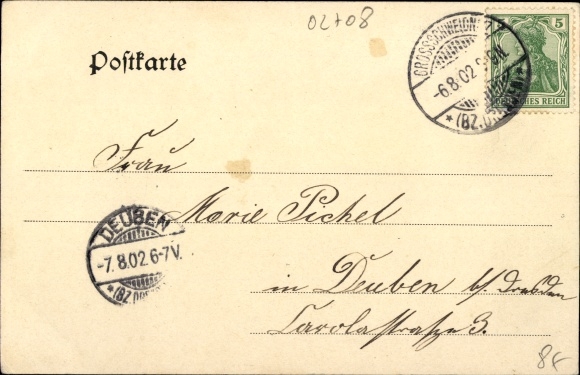 02708
Postkarte
GROSSSCHWEIDNITZ
-6.8.02
*(BZ.DRESDEN)*
5
DEUTSCHES REICH
Frau
Marie Pichel
in Deuben b/ Dresden
Carolastrasse 3.
DEUBEN
-7.8.02.6-7V.
*(BZ.DRESDEN)
8€